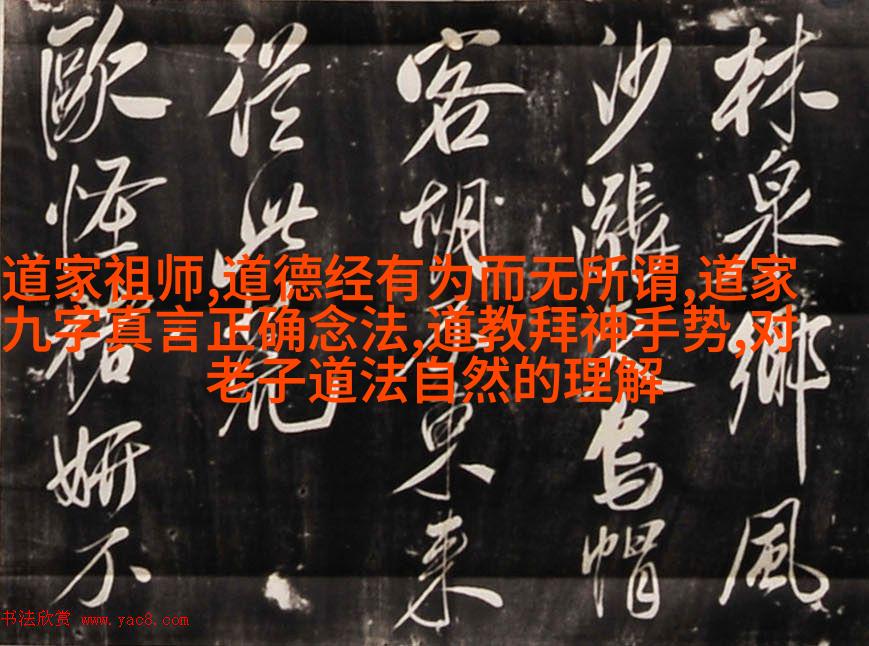 道家祖师,道德经有为而无所谓,道家
九字真言正确念法,道教拜神手势,对
老子道法自然的理解
林泉鄉風
沙漲烏帽
客胡東來
從此
歐怪褚妍不
书法欣赏 www.yac8.com